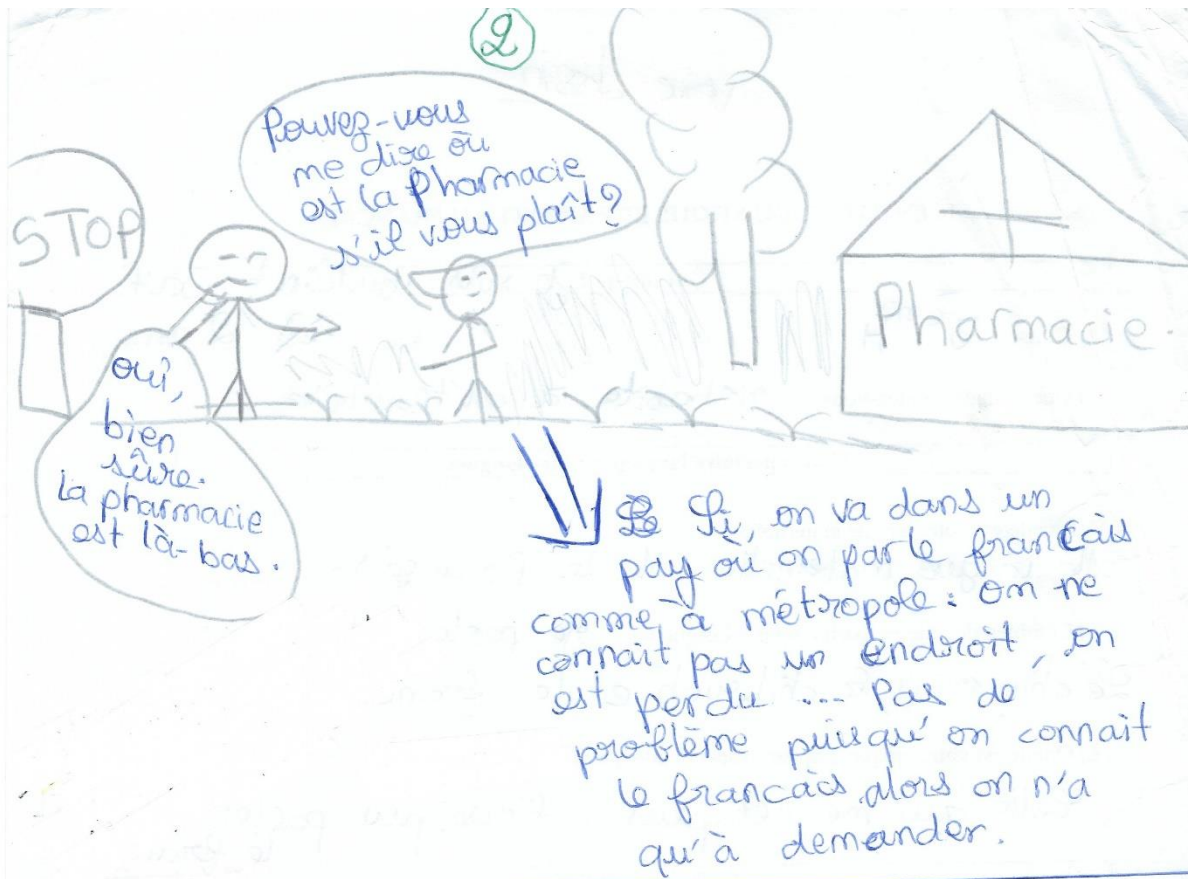 2
Pouvez-vous
me dire où
est la Pharmacie
s'il vous plaît?
STOP
oui,
bien
sûre.
La pharmacie
est là-bas.
Pharmacie.
Si, on va dans un
pay où on parle français
comme à métropole : on ne
connait pas un endroit, on
est perdu ... Pas de
problème puisqu'on connait
le francais alors on n'a
qu'à demander.